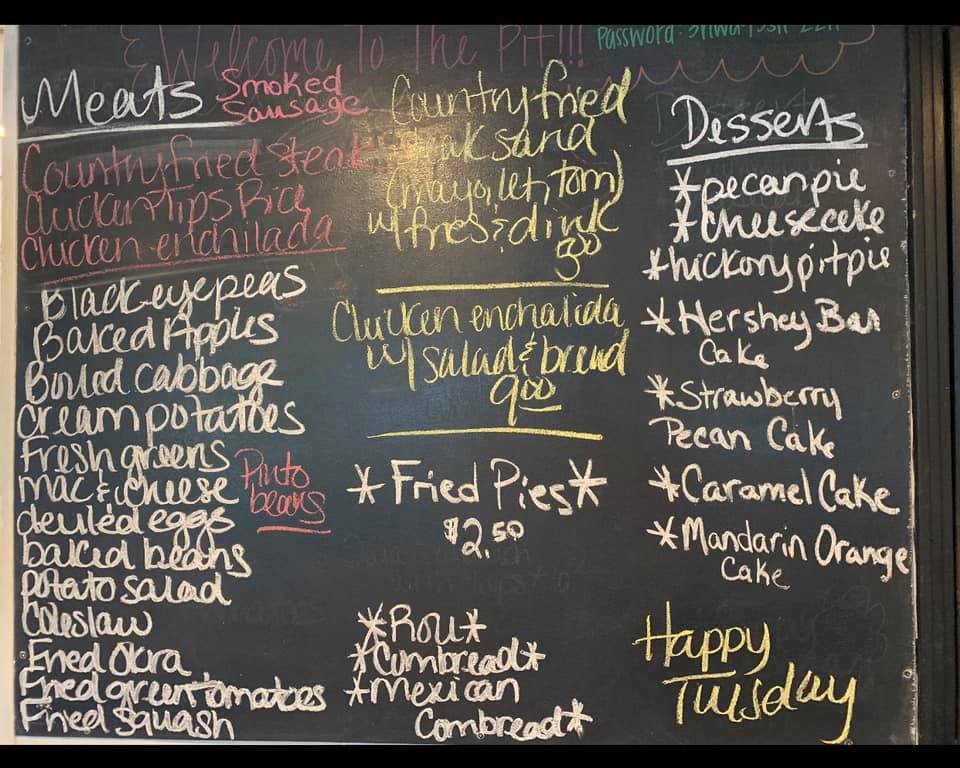 & Welcome To The Pit!!!
Password:
Meats
Smoked
Sausage
Countryfried Steak
Chicken Tips Rice
Chicken enchilada
Blackeyepeas
Baked Apples
Boiled cabbage
Cream potatoes
Fresh greens
Mac & cheese
Pinto
beans
deviled eggs
baked beans
Potato salad
Coleslaw
Fried Okra
Fried green tomatoes
Fried Squash
Countryfried
steak sand
(mayo, let, tom)
w/ fries & drink
Chicken enchalida
w/ salad & bread
9.00
*Fried Pies*
$2.50
*Roll*
*Cornbread*
*Mexican
Cornbread*
Desserts
*pecan pie
*cheesecake
*hickory pit pie
*Hershey Bar
Cake
*Strawberry
Pecan Cake
*Caramel Cake
*Mandarin Orange
Cake
Happy
Tuesday